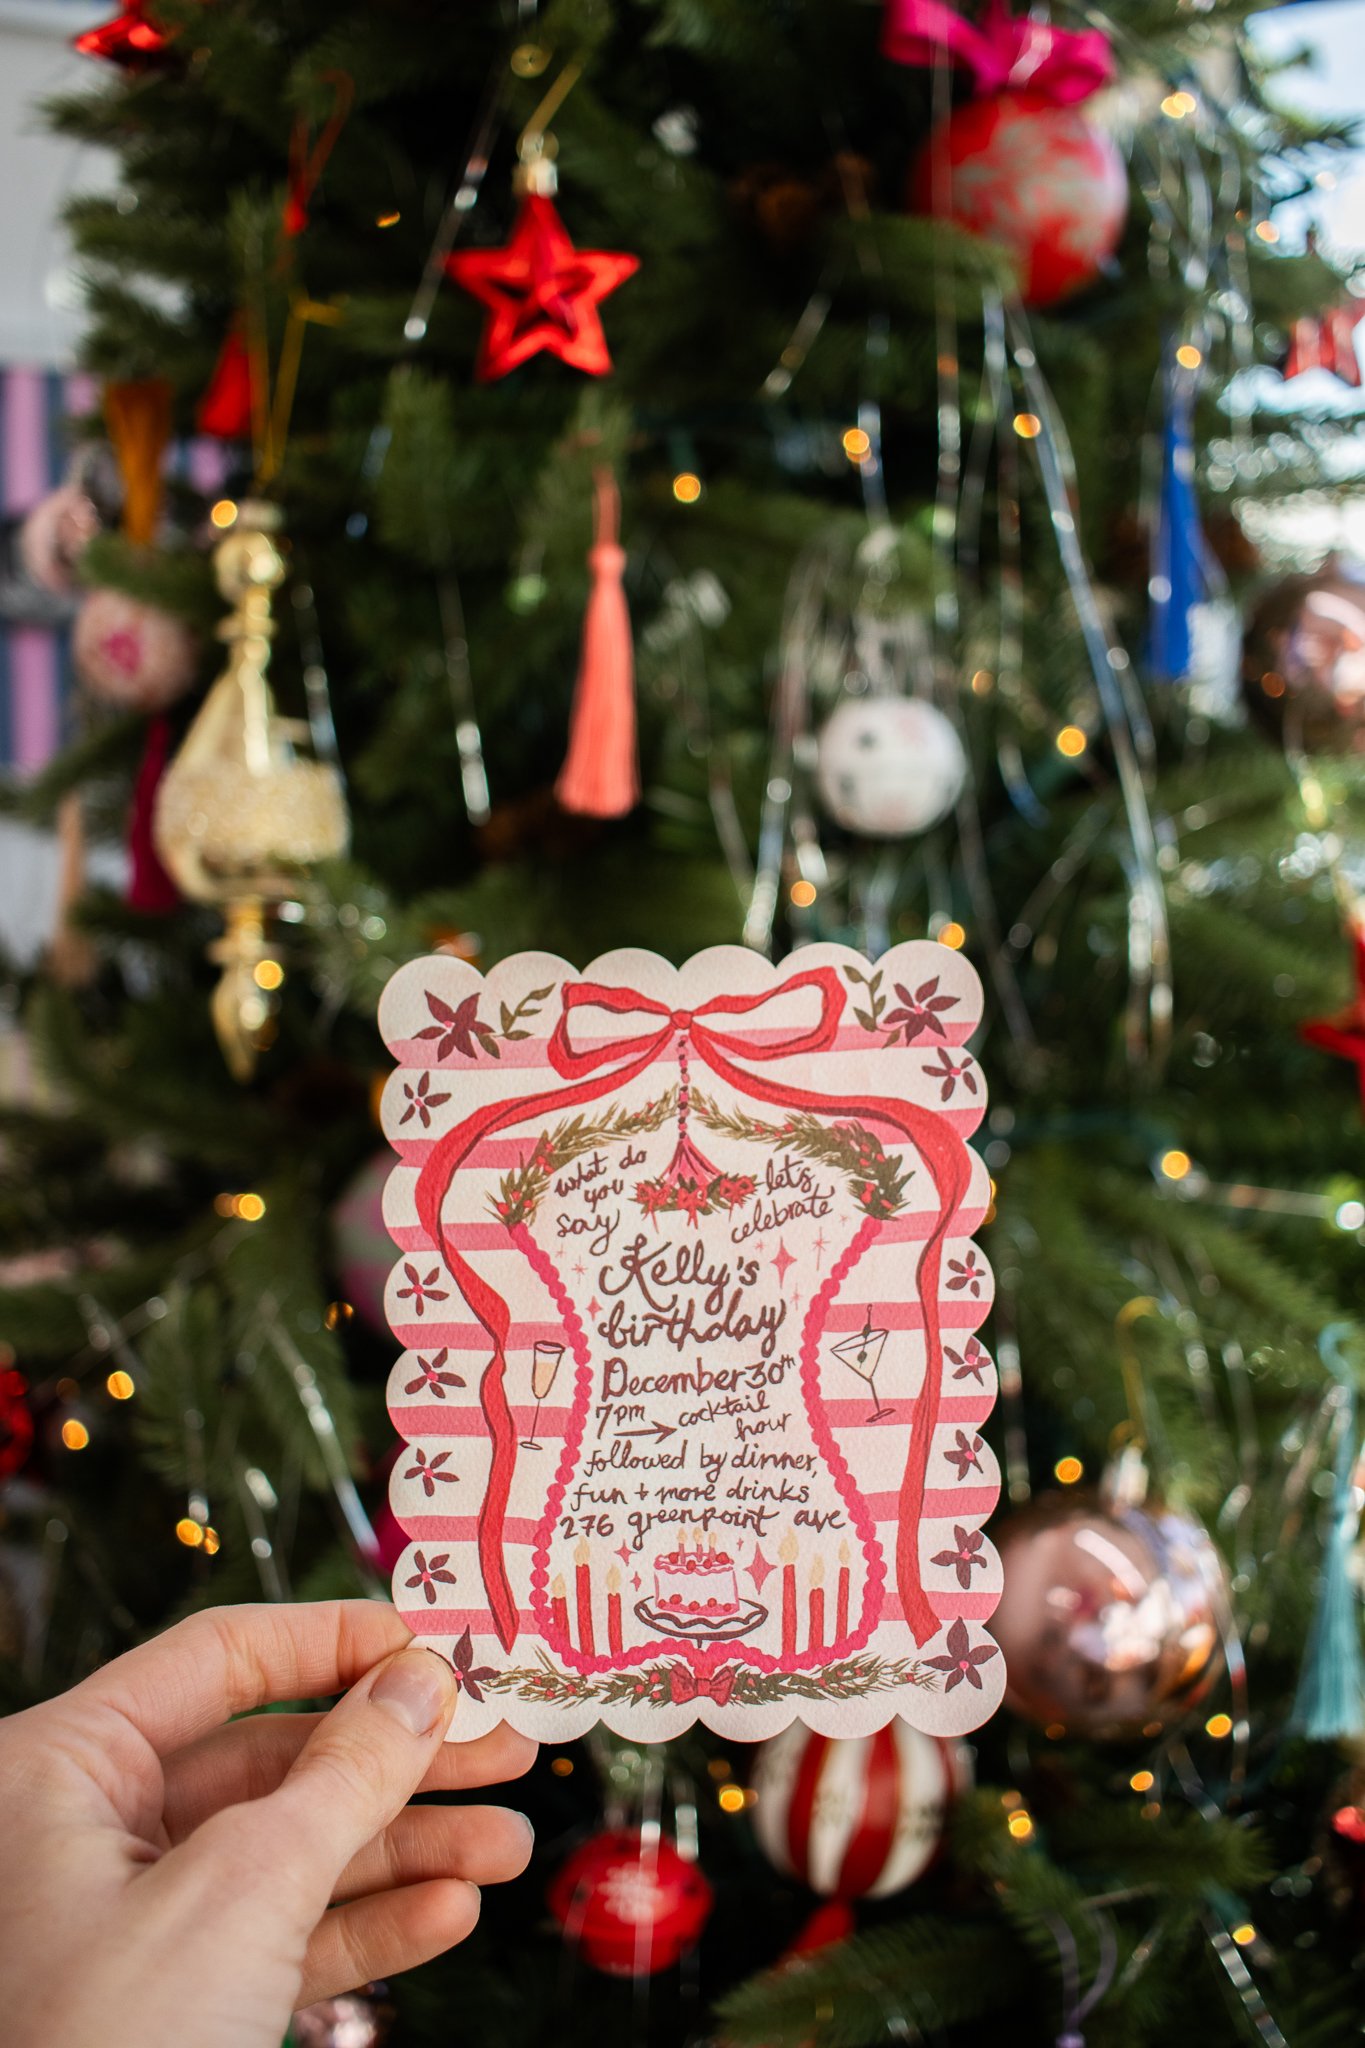 what do
you
say
let's
celebrate
Kelly's
birthday
December 30th
7pm → cocktail
hour
followed by dinner,
fun + more drinks
276 greenpoint ave